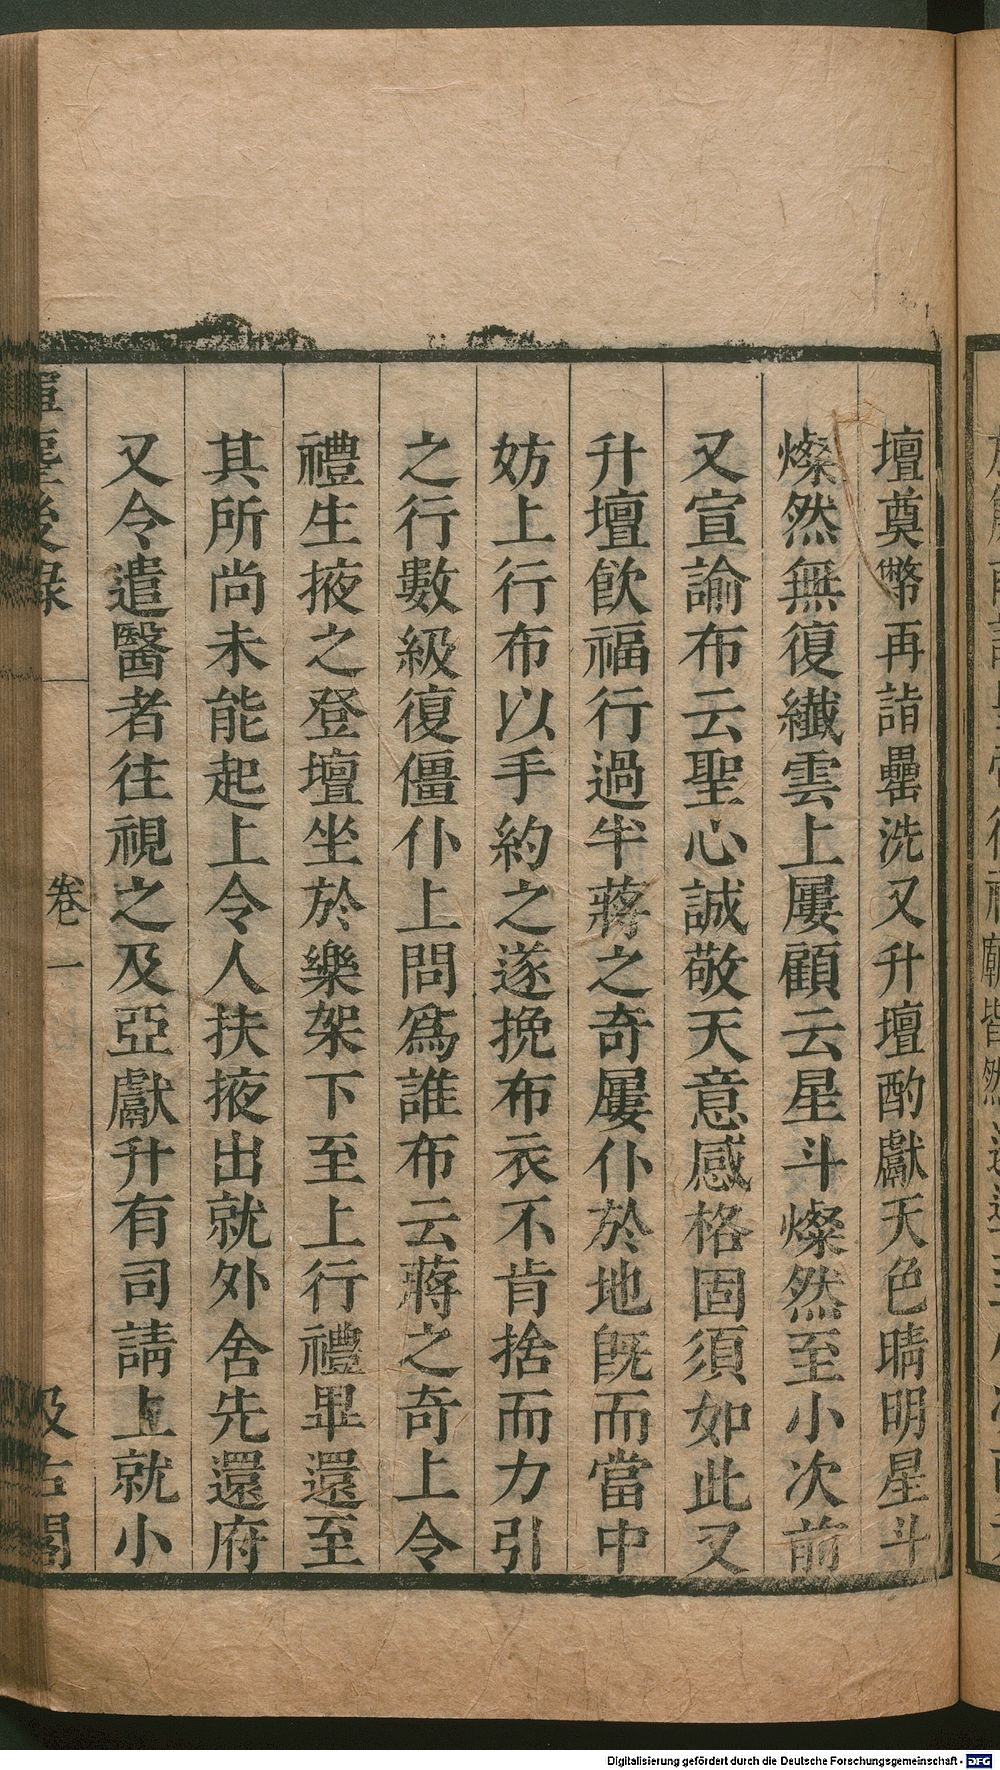 壇奠幣再詣罍洗又升壇酌獻天色晴明星斗
燦然無復纖雲上屢顧云星斗燦然至小次前
又宣諭布云聖心誠敬天意感格固須如此又
升壇飲福行過半蔣之奇屢仆於地旣而當中
妨上行布以手約之遂挽布衣不肯捨而力引
之行數級復僵仆上問爲誰布云蔣之奇上令
禮生掖之登壇坐於樂架下至上行禮畢還至
其所尚未能起上令人扶掖出就外舍先還府
又令遣醫者往視之及亞獻升有司請上就小
後錄
卷一
汲古閣
Digitalisierung gefördert durch die Deutsche Forschungsgemeinschaft - DFG